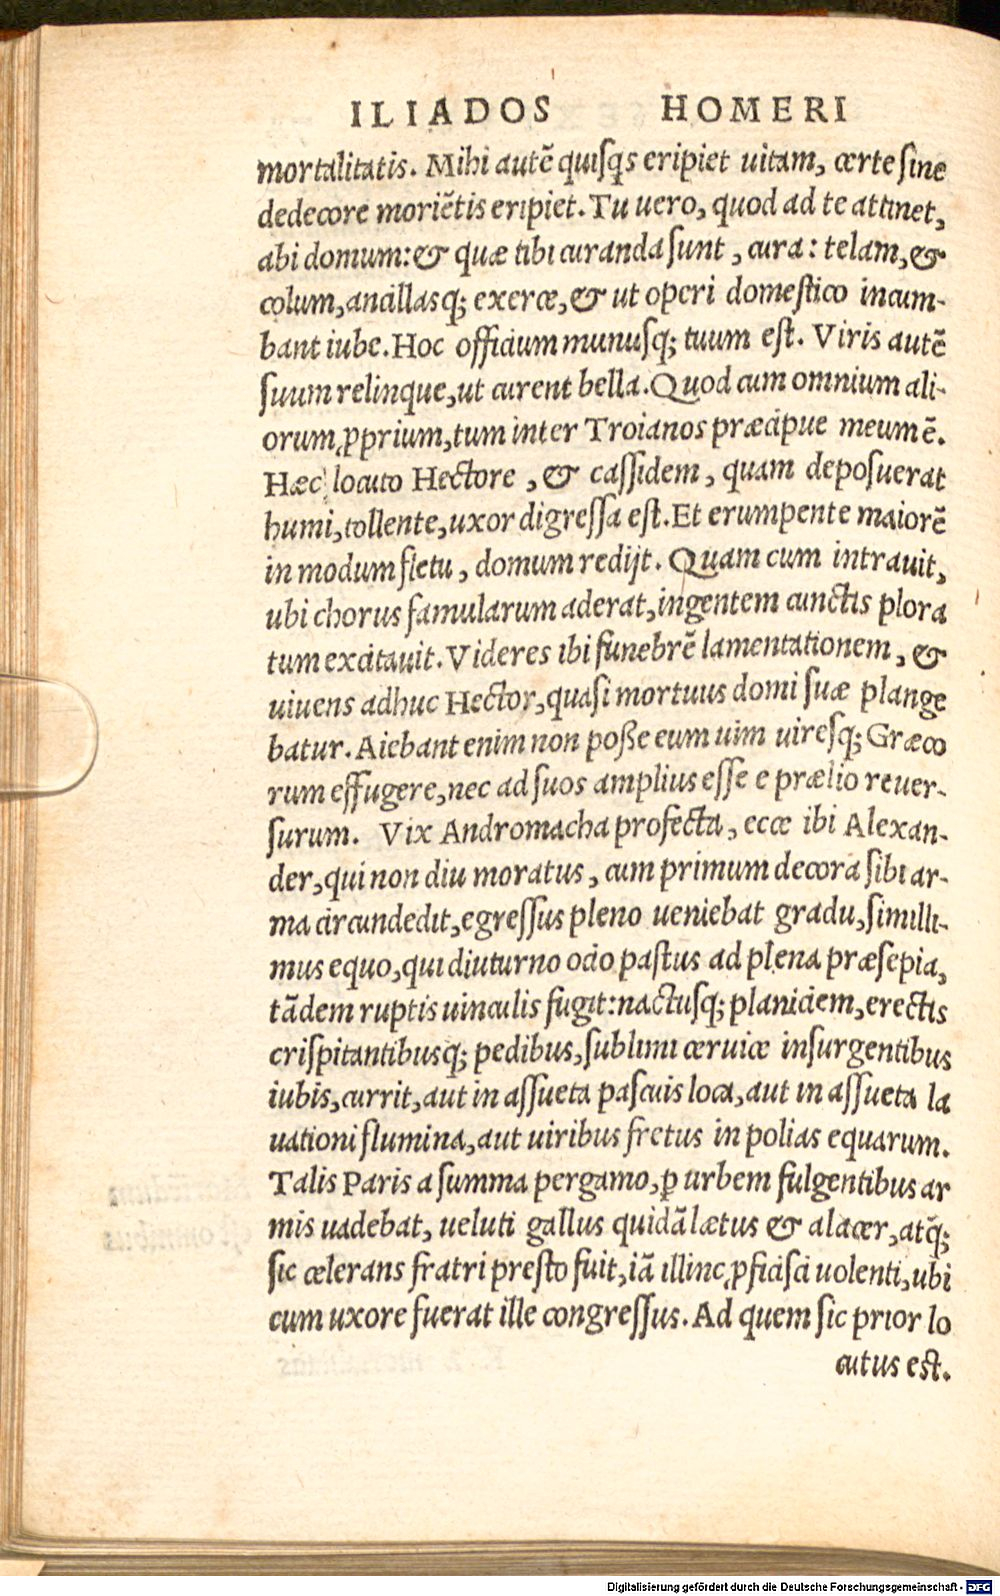 ILIADOS HOMERI
mortalitatis. Mihi autē quisqs eripiet uitam, certe sine
dedecore moriētis eripiet. Tu uero, quod ad te attinet,
abi domum: & quæ tibi curanda sunt, cura: telam, &
colum, ancillasq; exerce, & ut operi domestico incum-
bant iube. Hoc officium munusq; tuum est. Viris autē
suum relinque, ut curent bella. Quod cum omnium ali-
orum ꝓprium, tum inter Troianos præcipue meum ē.
Hæc locuto Hectore, & cassidem, quam deposuerat
humi, tollente, uxor digressa est. Et erumpente maiorē
in modum fletu, domum redijt. Quam cum intrauit,
ubi chorus famularum aderat, ingentem cunctis plora
tum excitauit. Videres ibi funebrē lamentationem, &
uiuens adhuc Hector, quasi mortuus domi suæ plange
batur. Aiebant enim non posse eum uim uiresq; Græco
rum effugere, nec ad suos amplius esse e prælio reuer-
surum. Vix Andromacha profecta, ecce ibi Alexan-
der, qui non diu moratus, cum primum decora sibi ar-
ma circundedit, egressus pleno ueniebat gradu, simili-
mus equo, qui diuturno ocio pastus ad plena præsepia,
tādem ruptis uinculis fugit: nactusq; planiciem, erectis
crispitantibusq; pedibus, sublimi ceruice insurgentibus
iubis, currit, aut in assueta pascuis loca, aut in assueta la
uationi flumina, aut uiribus fretus in polias equarum.
Talis Paris a summa pergamo, ꝑ urbem fulgentibus ar
mis uadebat, ueluti gallus quidā lætus & alacer, atq̃;
sic celerans fratri presto fuit, iā illinc ꝓficisci uolenti, ubi
cum uxore fuerat ille congressus. Ad quem sic prior lo
cutus est.
Digitalisierung gefördert durch die Deutsche Forschungsgemeinschaft - DFG